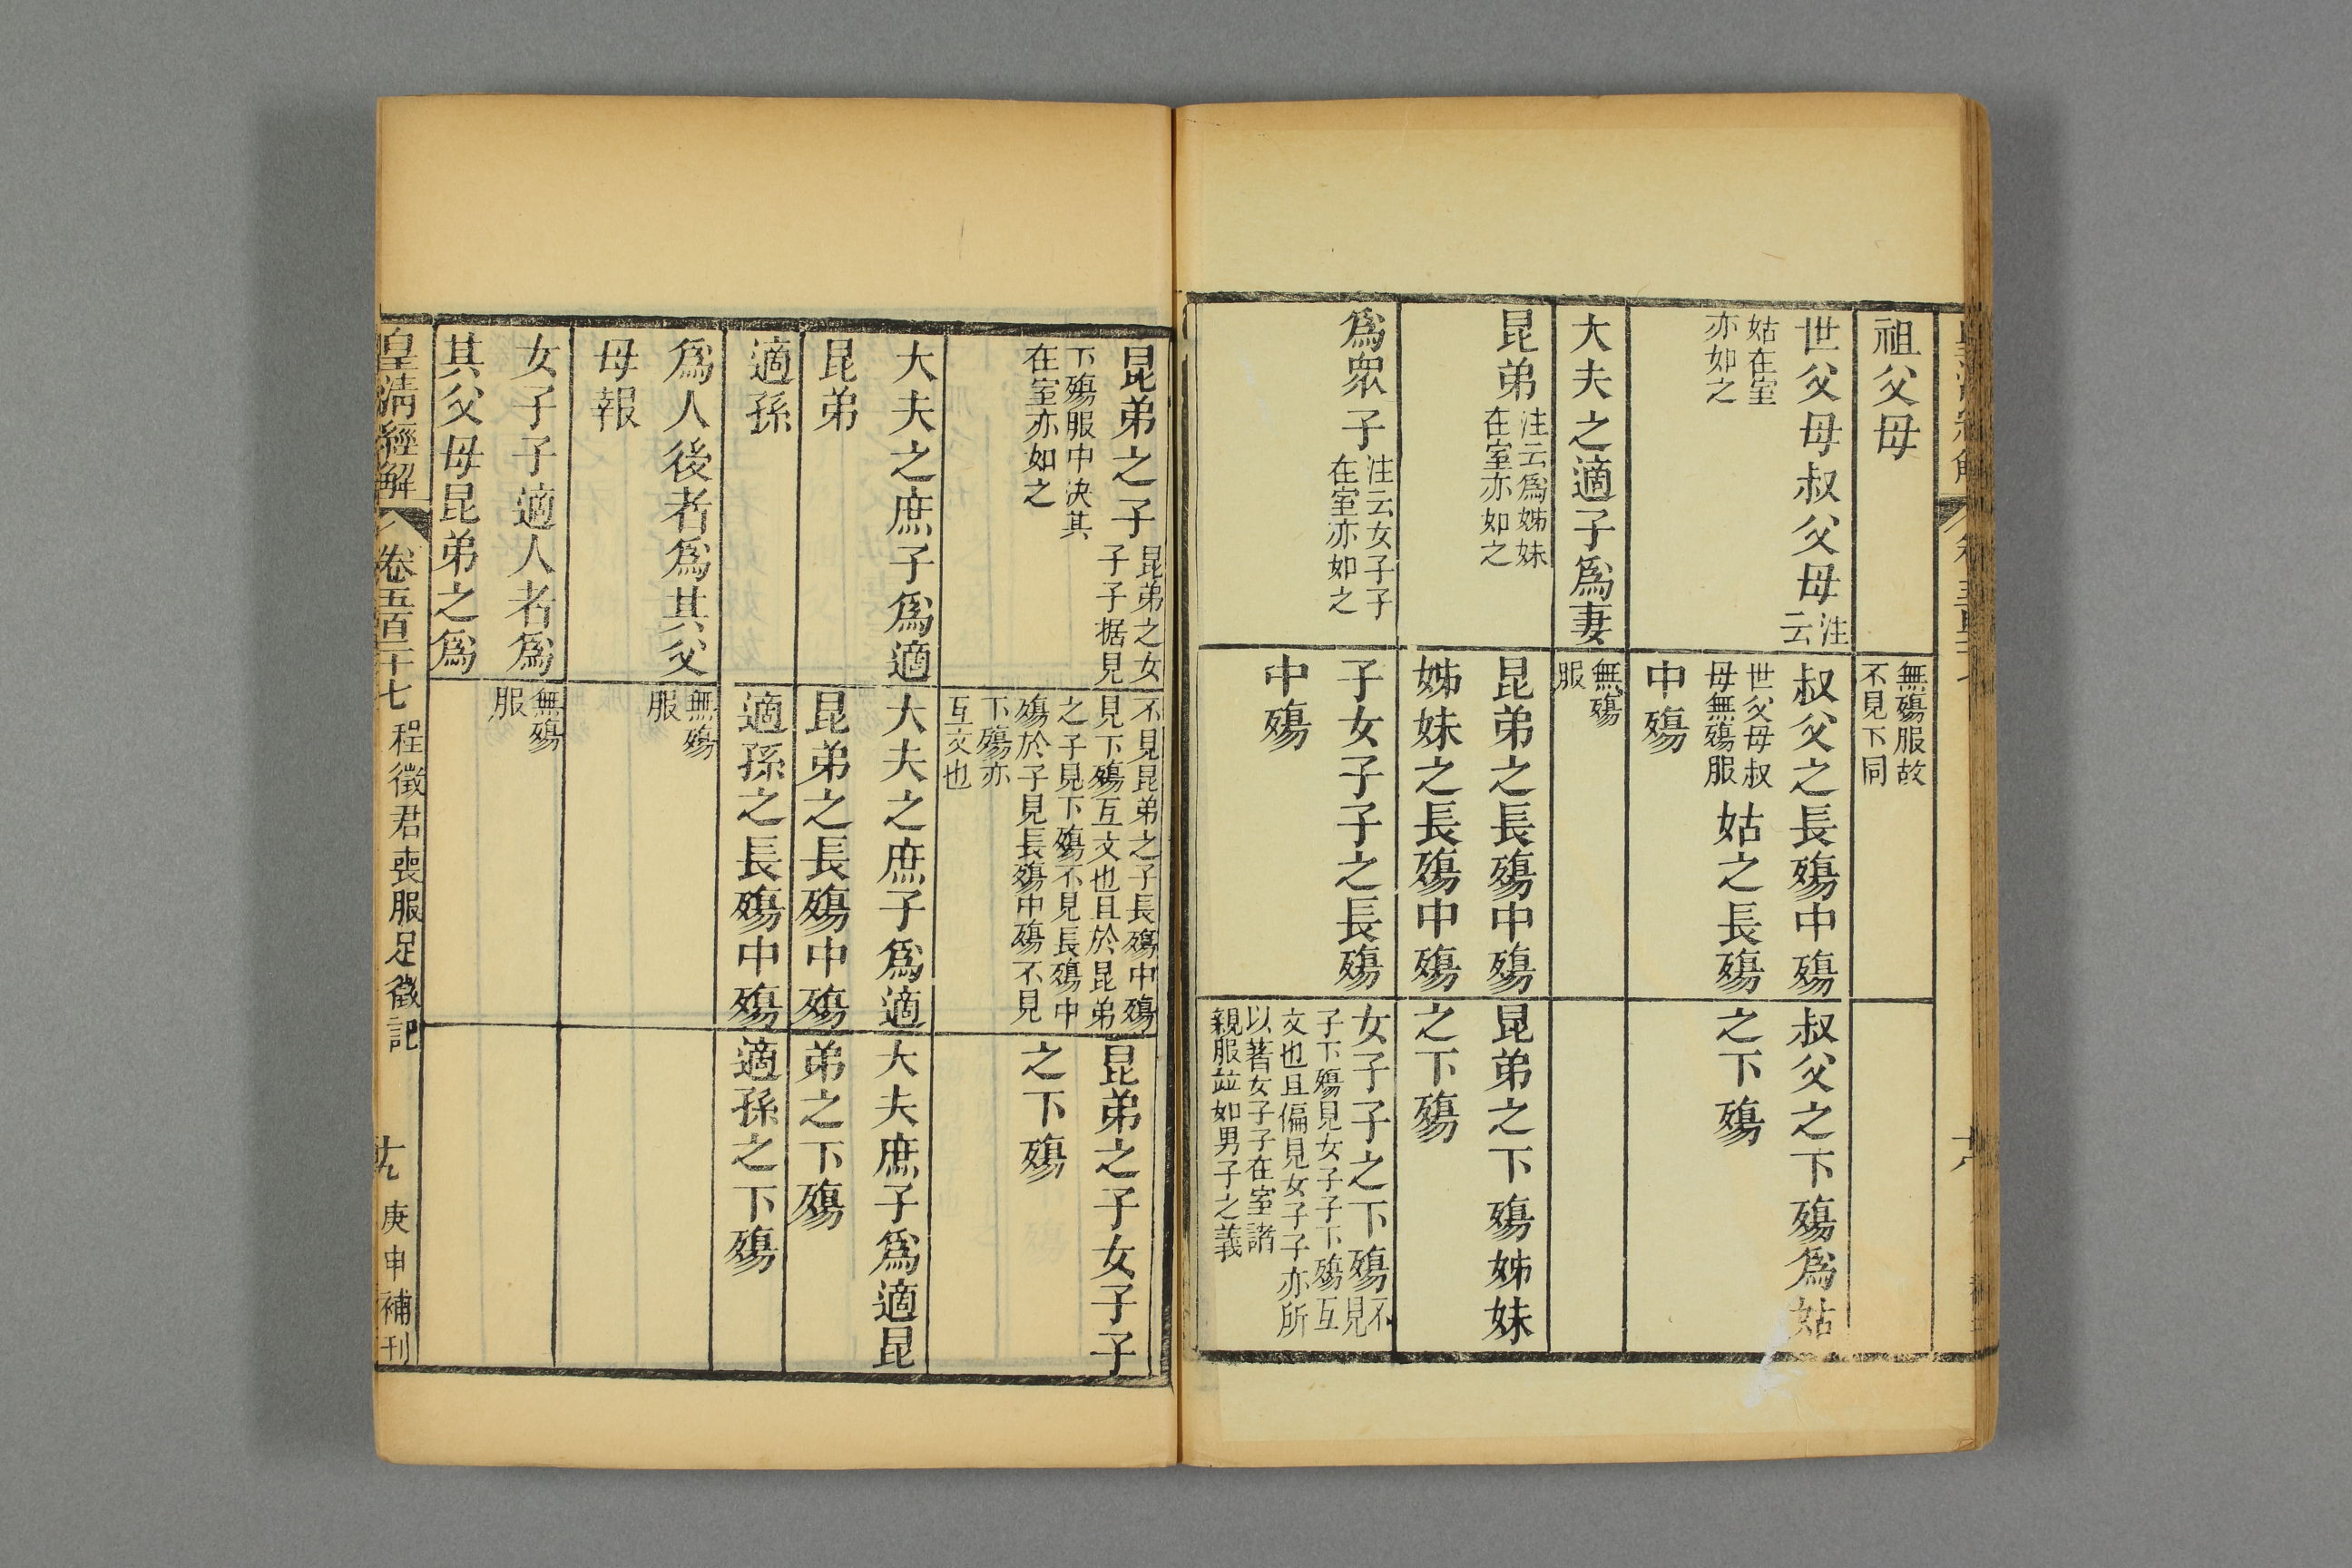 祖父母
無殤服故
不見下同
世父母叔父母注
云
姑在室
亦如之
叔父之長殤中殤
世父母叔
母無殤服
姑之長殤
中殤
叔父之下殤爲姑
之下殤
大夫之適子爲妻
無殤
服
昆弟
注云爲姊妹
在室亦如之
昆弟之長殤中殤
姊妹之長殤中殤
昆弟之下殤姊妹
之下殤
爲眾子
注云女子子
在室亦如之
子女子子之長殤
中殤
女子子之下殤不
見
子下殤見女子子下殤互
文也且偏見女子子亦所
以著女子子在室諸
親服竝如男子之義
昆弟之子
昆弟之女
子子据見
下殤服中決其
在室亦如之
不見昆弟之子長殤中殤
見下殤互文也且於昆弟
之子見下殤不見長殤中
殤於子見長殤中殤不見
下殤亦
互文也
昆弟之子女子子
之下殤
大夫之庶子爲適
昆弟
大夫之庶子爲適
昆弟之長殤中殤
大夫庶子爲適昆
弟之下殤
適孫
適孫之長殤中殤
適孫之下殤
爲人後者爲其父
母報
無殤
服
女子子適人者爲
其父母昆弟之爲
無殤
服
皇清經解
卷五百二十七
程徵君喪服足徵記
十九
庚申補刊